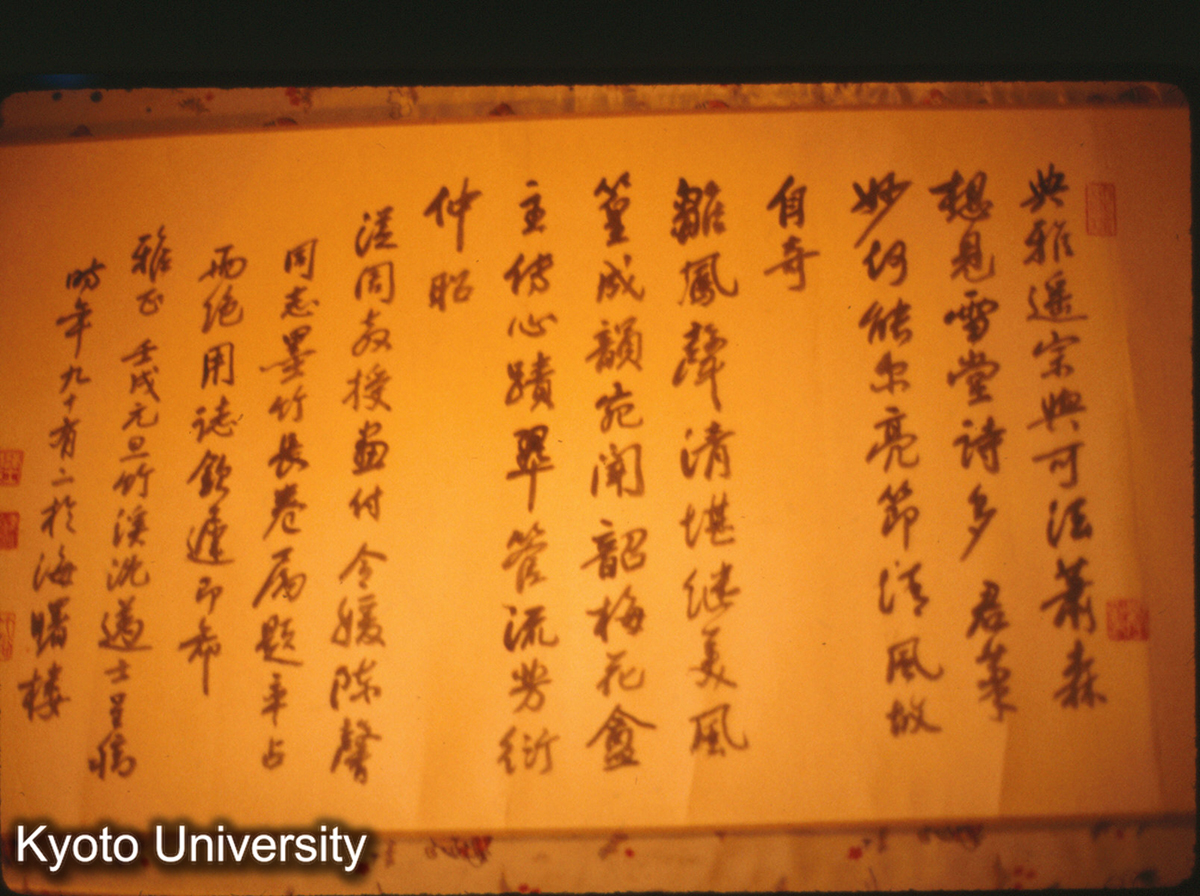 典雅遥宗與可法蕭森
想見雪堂詩多君筆
妙何能尔亮節清風故
自奇
雛鳳聲清堪継美風
篁成韻宛聞韶梅花盦
主傳心蹟翠管流芳衍
仲昭
漢同教授畫付令媛陈馨
同志墨竹長卷属題率占
兩絶用誌欽遲即希
雅正 壬戌元旦竹溪沈邁士呈稿
時年九十有二於海曙楼
Kyoto University